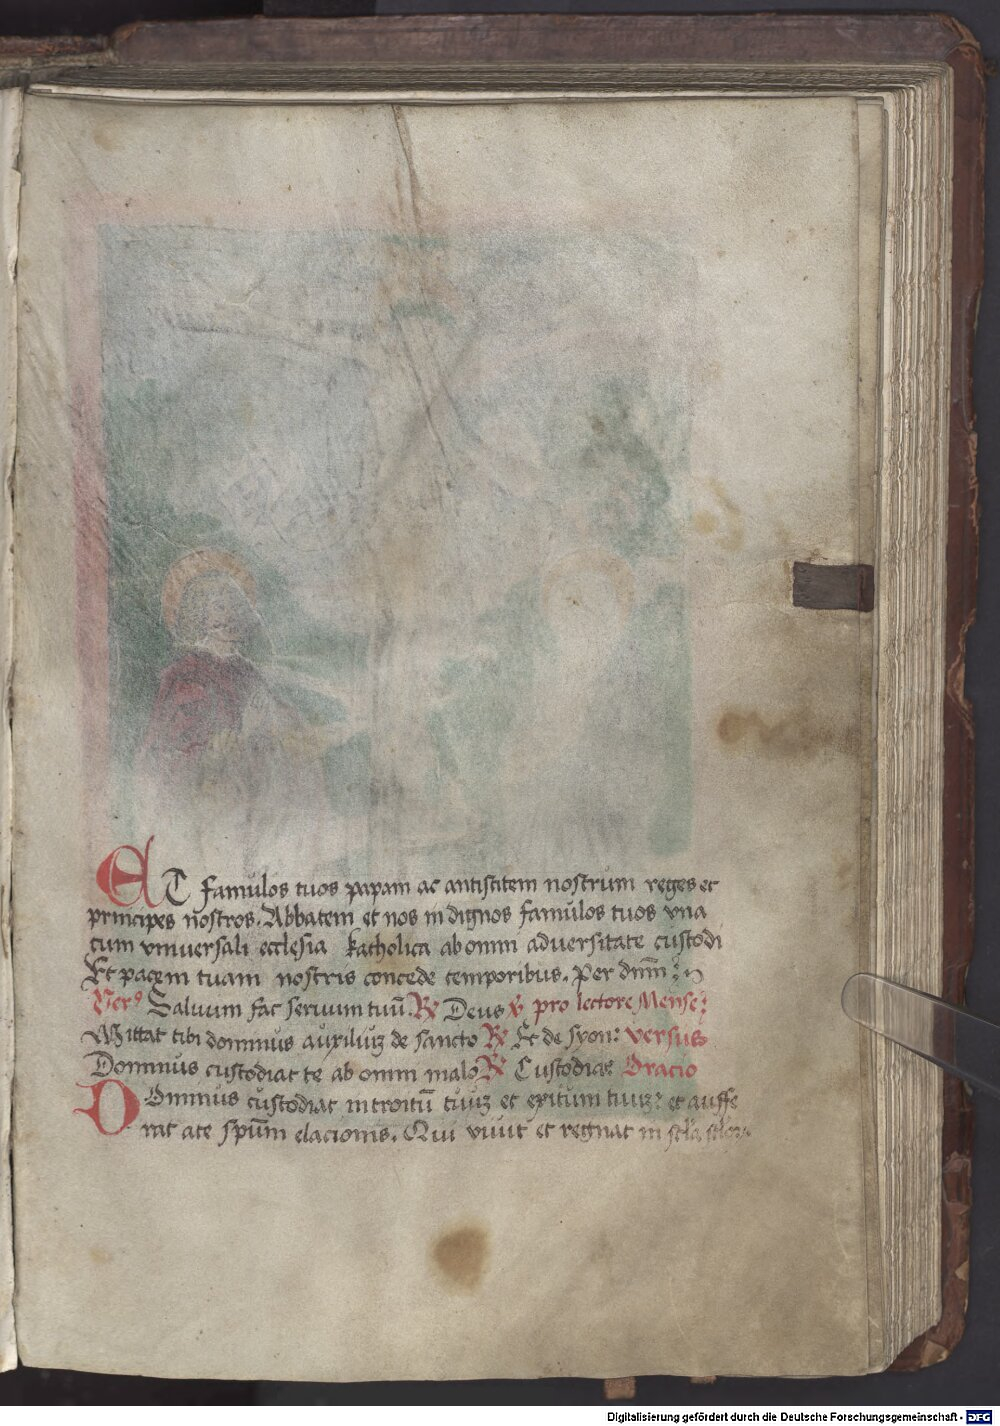 ET famulos tuos papam ac antistitem nostrum reges et
principes nostros. Abbatem et nos indignos famulos tuos vna
cum vniuersali ecclesia katholica ab omni aduersitate custodi
Et pacem tuam nostris concede temporibus. Per dnm̄
Vers⁹ Saluum fac seruum tuū. ℟ Deus ℣ pro lectore Mense
Mittat tibi dominus auxiliuʒ de sancto ℟ Et de syon: versus
Dominus custodiat te ab omni malo ℟ Custodiat Oracio
Dominus custodiat introitū tuuʒ et exitum tuuʒ: et auffe
rat a te spūm elacionis. Qui viuit et regnat in
Digitalisierung gefördert durch die Deutsche Forschungsgemeinschaft - DFG